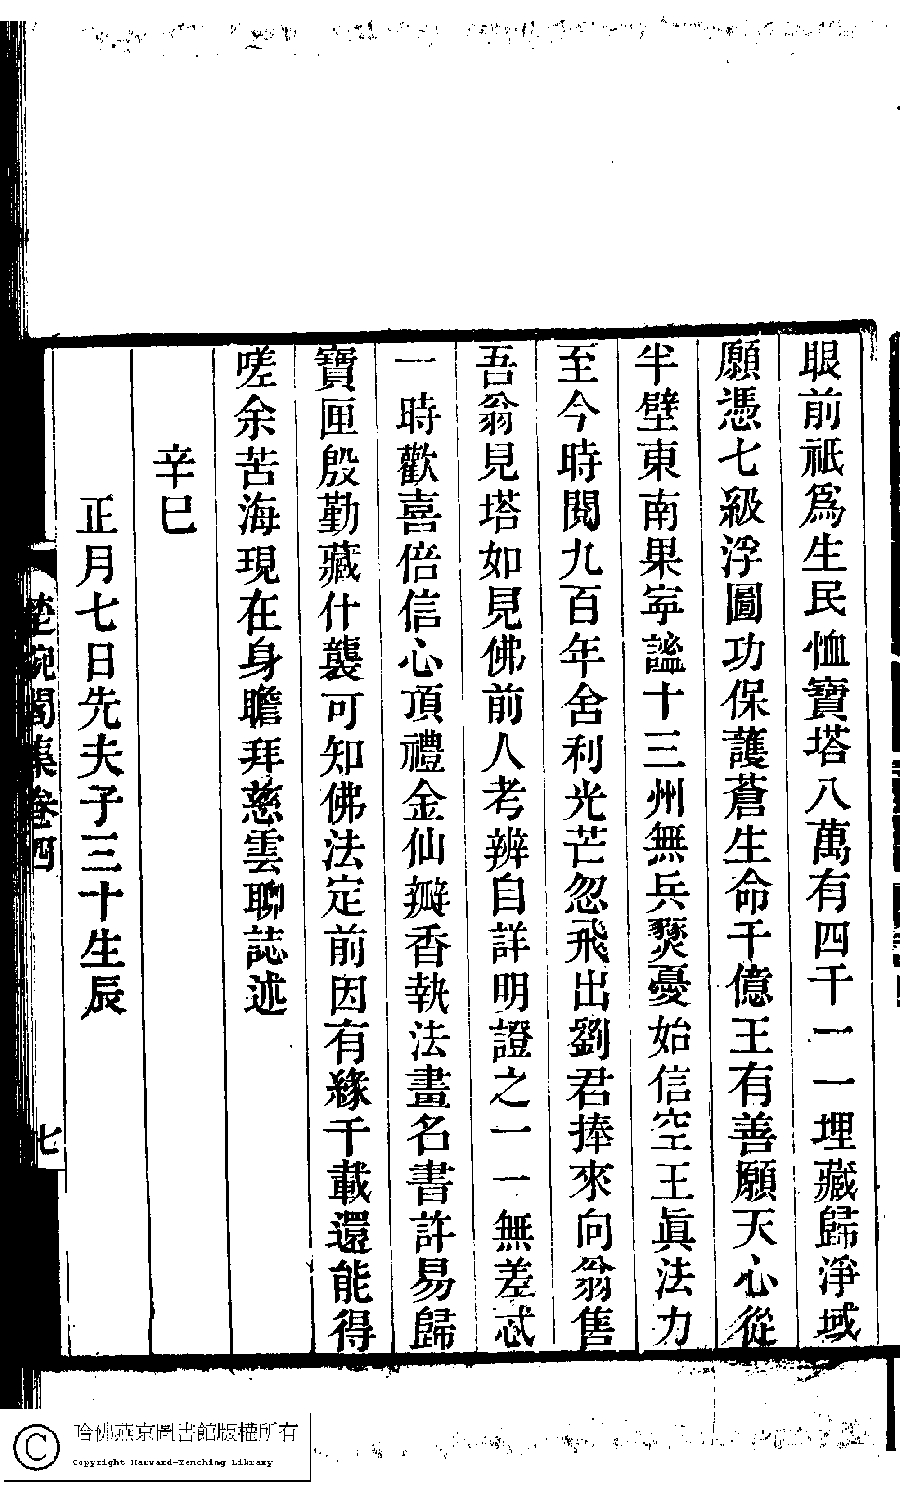 眼前祗爲生民恤寶塔八萬有四千一一埋藏歸淨域
願憑七級浮圖功保護蒼生命千億王有善願天心從
半壁東南果寕謐十三州無兵燹憂始信空王眞法力
至今時閱九百年舍利光芒忽飛出劉君捧來向翁售
吾翁見塔如見佛前人考辨自詳明證之一一無差忒
一時歡喜倍信心頂禮金仙瓣香執法畫名書許易歸
寶匣殷勤藏什襲可知佛法定前因有緣千載還能得
嗟余苦海現在身瞻拜慈雲聊誌述
辛巳
正月七日先夫子三十生辰
楚畹閣集卷四
七
哈佛燕京圖書館版權所有
Copyright Harvard-Yenching Library